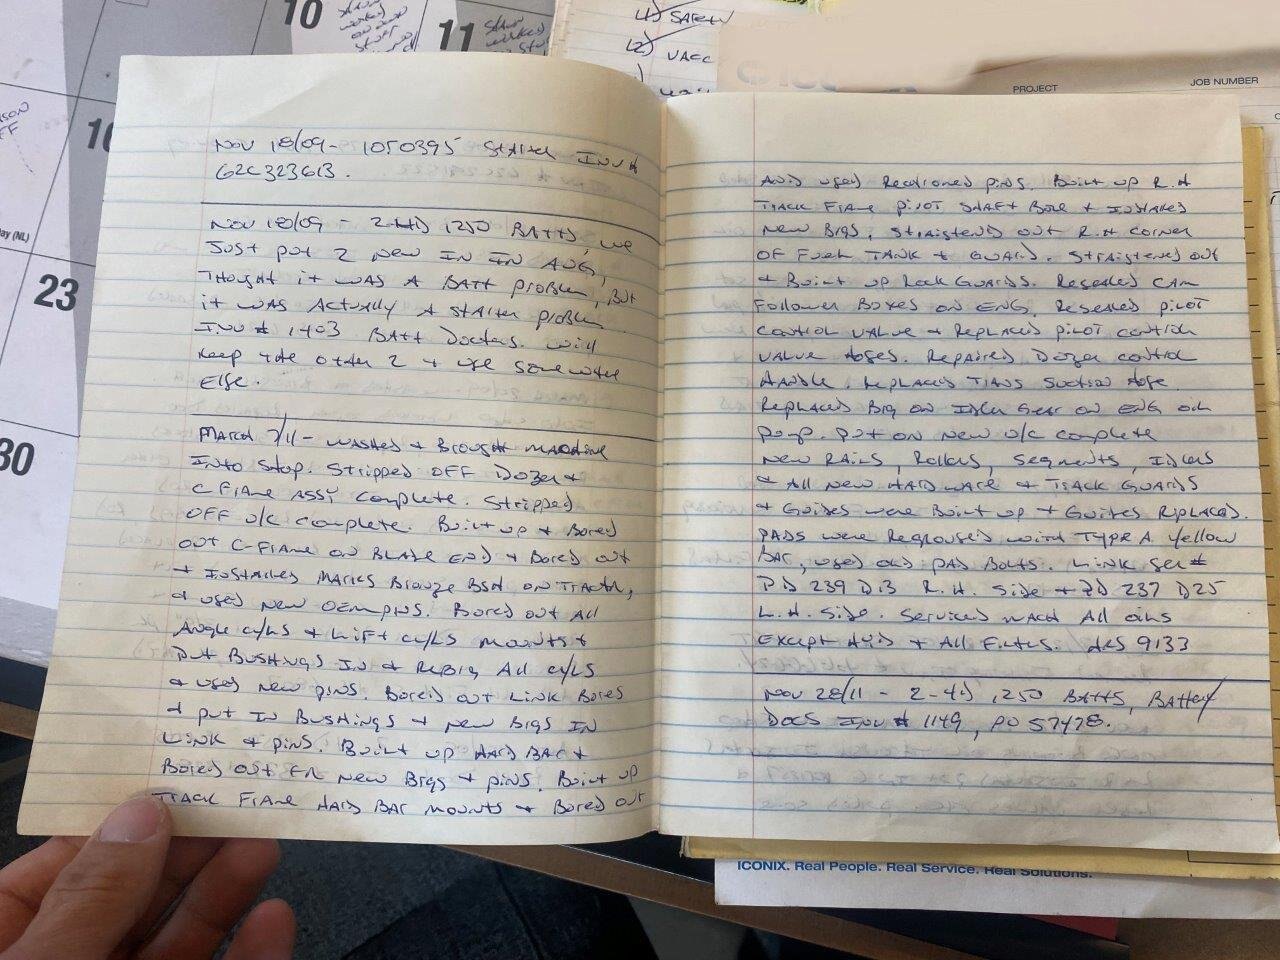 10
11
4) SAFETY
(2) VACC
PROJECT
JOB NUMBER
23
30
Nov 18/09 - 1050395 STARTER INV #
G2C323613.
Nov 18/09 - 2-4D 1250 BATTS, we
Just put 2 New IN IN AUG,
THOUGHT it WAS A BATT problem, BUT
it WAS Actually A STARTER problem
INV # 1403 BATT Doctors. will
Keep the other 2 + use somewhere
ELSE.
MARCH 7/11 - WASHED & BROUGHT MACHINE
INTO SHOP. STRIPPED OFF DOZER &
C FRAME ASSY COMPLETE. STRIPPED
OFF U/C COMPLETE. BUILT UP & BORED
OUT C-FRAME ON BLADE END & BORED OUT
& INSTALLED MARKS BRONZE BSH ON TRACTOR,
& USED NEW OEM PINS. BORED OUT ALL
ANGLE CYLS & LIFT CYLS MOUNTS &
PUT BUSHINGS IN & REBRG ALL CYLS
& USED NEW PINS. BORED OUT LINK BORES
& PUT IN BUSHINGS & NEW BRGS IN
LINK & PINS. BUILT UP HARD BAR &
BORED OUT FR NEW BRGS & PINS. BUILT UP
TRACK FRAME HARD BAR MOUNTS & BORED OUT
AND USED PINS. BUILT UP R.H
TRACK FRAME PIVOT SHAFT BORE & INSTALLED
NEW BRGS, STRAIGTEND OUT R.H CORNER
OF FUEL TANK & GUARD. STRAIGTENED OUT
& BUILT UP ROCK GUARDS. RESEALED CAM
FOLLOWER BOXES ON ENG. RESEALED PILOT
CONTROL VALVE & REPLACED PILOT CONTROL
VALVE HOSES. REPAIRED DOZER CONTROL
HANDLE. REPLACED TRANS SUCTION HOSE.
REPLACED BRG ON IDLER GEAR ON ENG OIL
PUMP. PUT ON NEW U/C COMPLETE
NEW RAILS, ROLLERS, SEGMENTS, IDLERS
& ALL NEW HARDWARE & TRACK GUARDS
& GUIDES WERE BUILT UP & GUIDES REPLACED.
PADS WERE REGROUSED WITH TYPE A YELLOW
BAR, USED OLD PAD BOLTS. LINK SER #
PD 239 D13 R.H. SIDE & PD 237 D25
L.H. SIDE. SERVICED MACH ALL OILS
EXCEPT HYD & ALL FILTERS. HRS 9133
Nov 28/11 - 2-4D 1250 BATTS, BATTERY
DOCS INV # 1149, PO 57478.
ICONIX. Real People. Real Service. Real Solutions.